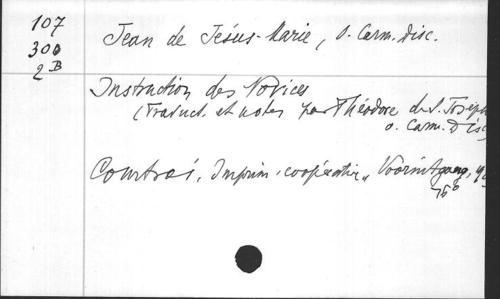 107
300
2 B
Jean de Jésus-Marie, O. Carm. Disc.
Instruction des Novices
(Traduct. et notes par Théodore de S. Joseph
o. Carm. Disc
Courtrai, Imprim. coopérative „Vooruitgang,